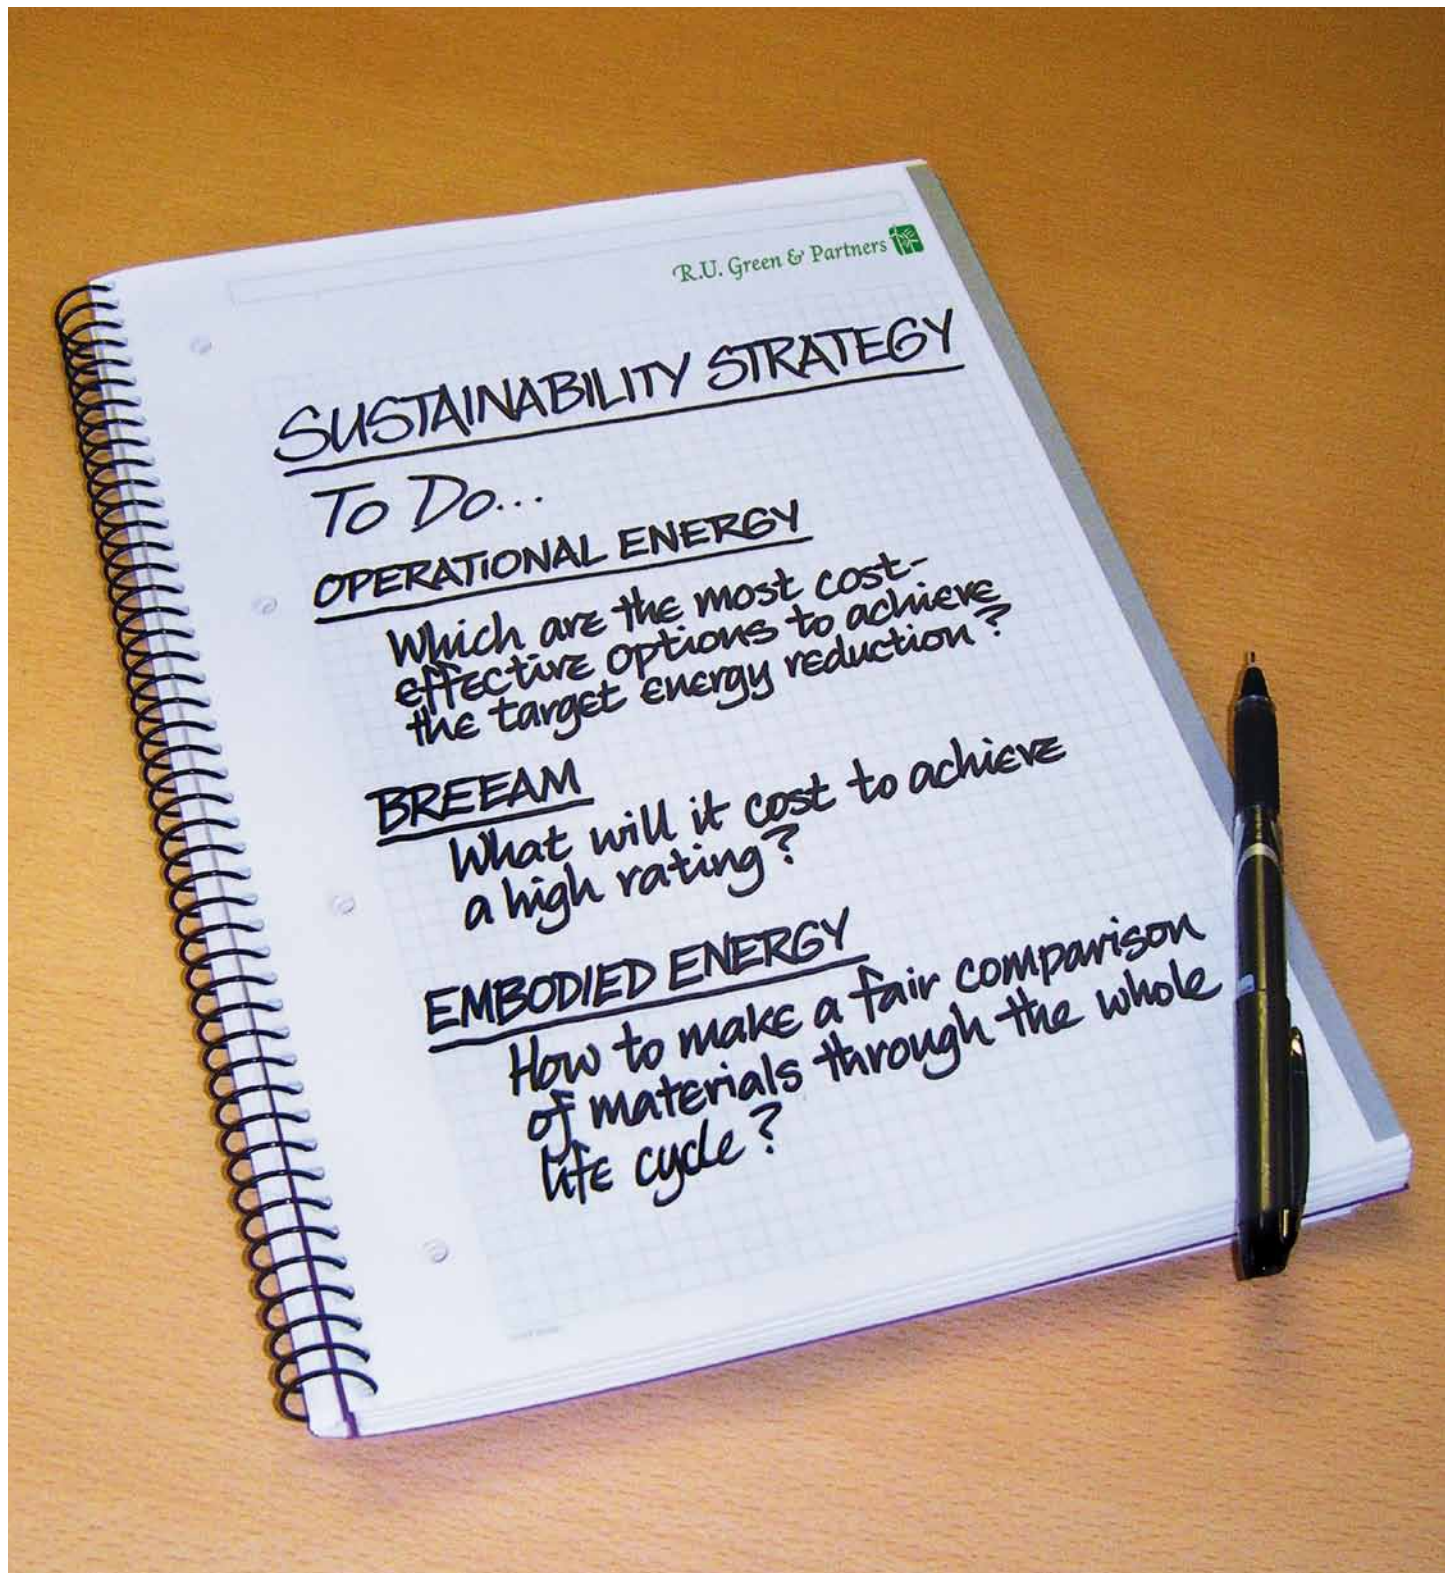 R.U. Green & Partners
SUSTAINABILITY STRATEGY
To Do...
OPERATIONAL ENERGY
Which are the most cost-
effective options to achieve
the target energy reduction?
BREEAM
What will it cost to achieve
a high rating?
EMBODIED ENERGY
How to make a fair comparison
of materials through the whole
life cycle?